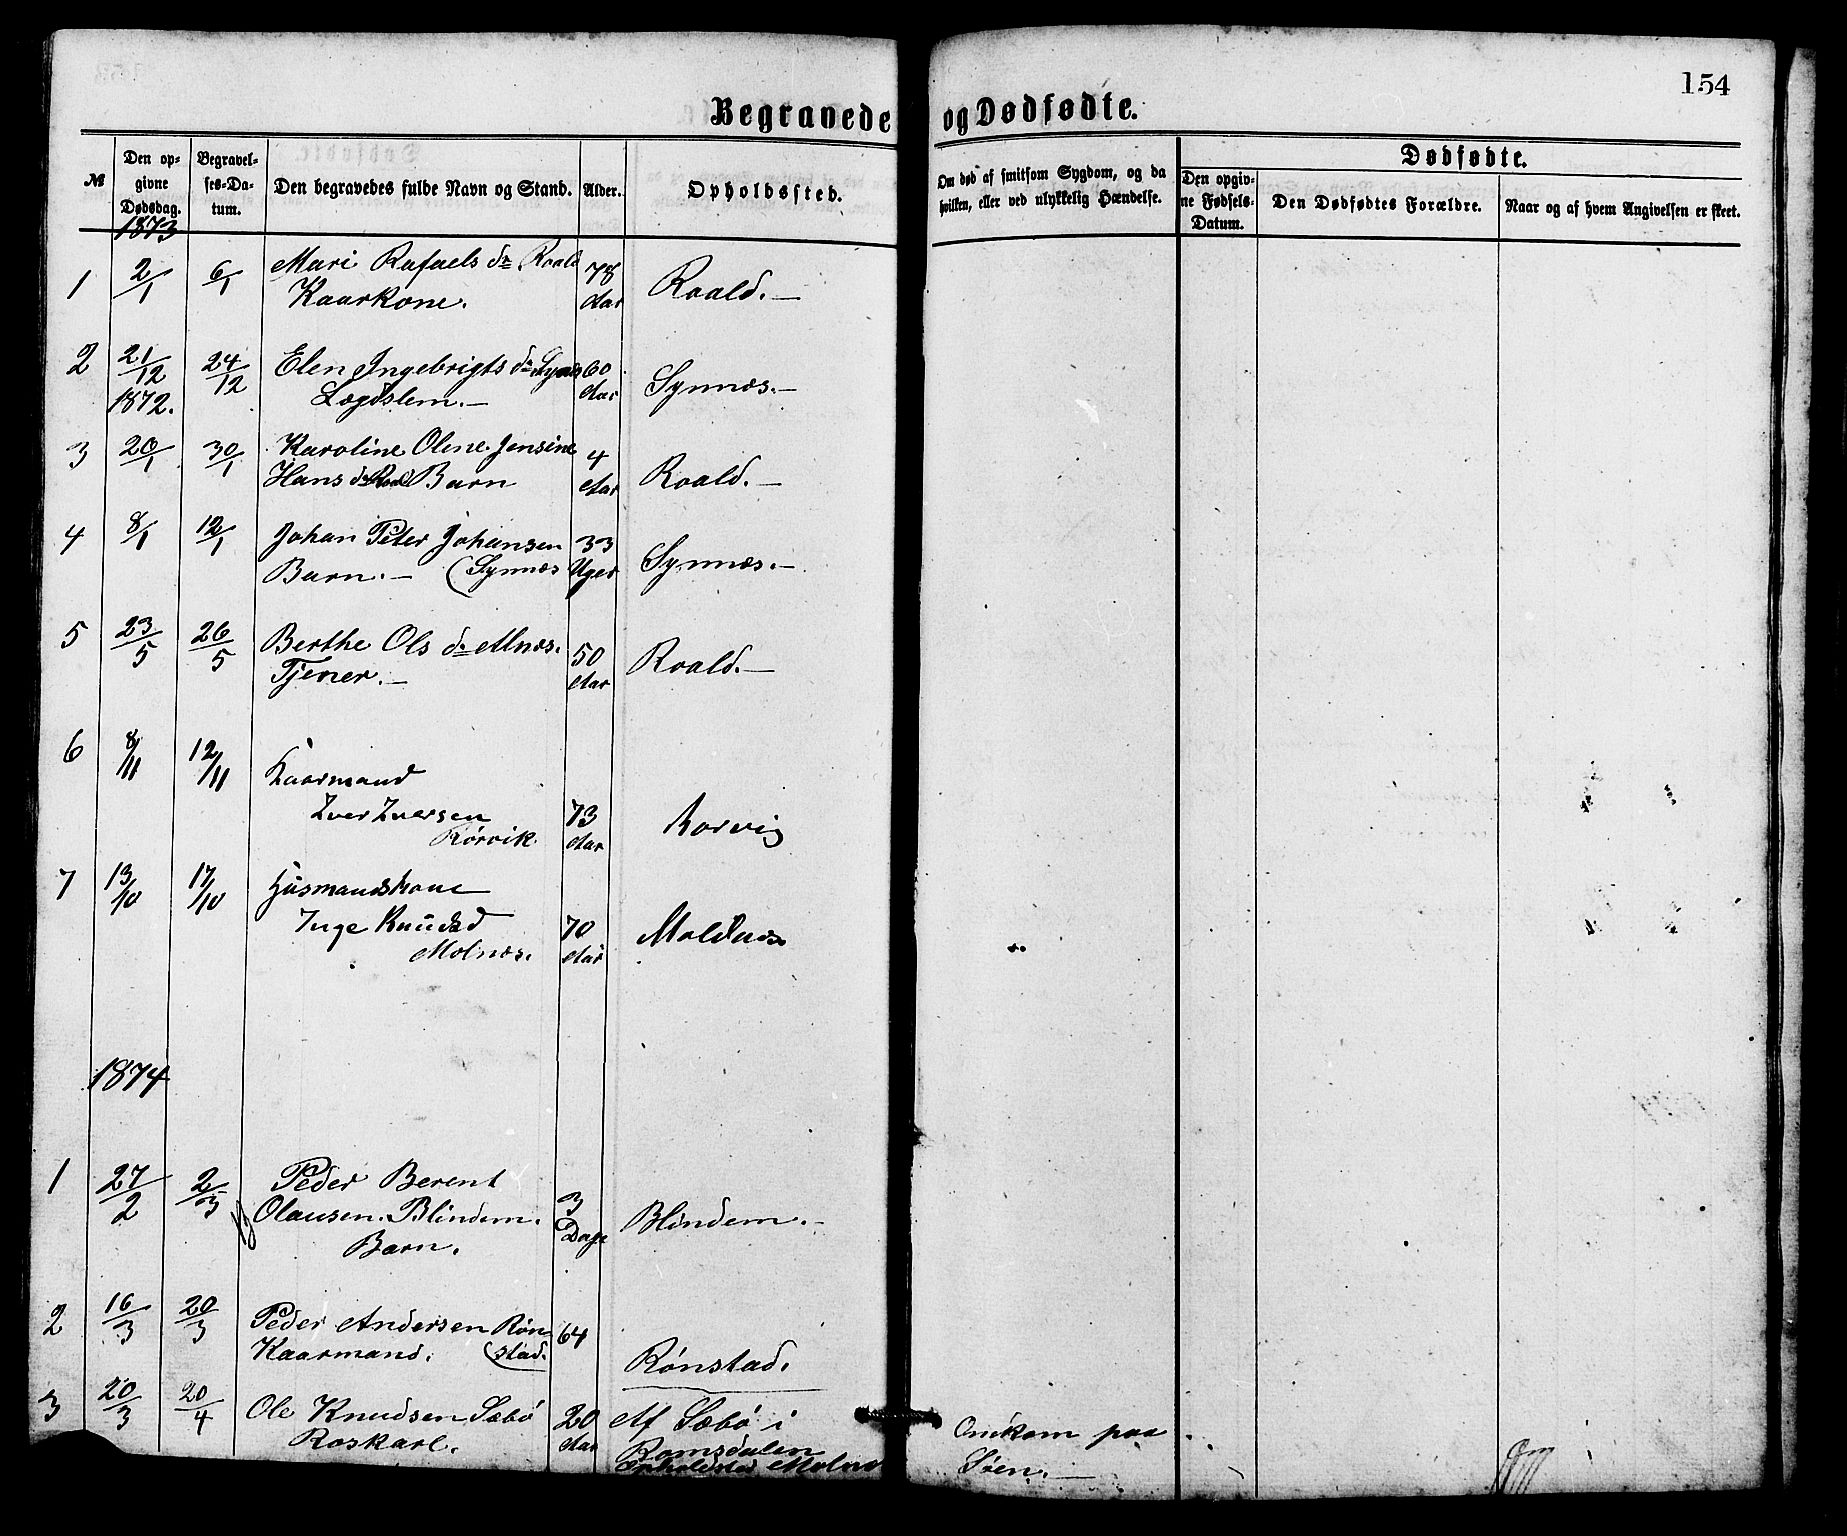 154
Begravede og Dødfødte.
№
Den opgivne Dødsdag.
Begravelses-Datum.
Den begravedes fulde Navn og Stand.
Alder.
Opholdssted.
Om død af smitsom Sygdom, og da hvilken, eller ved ulykkelig Hændelse.
Dødfødte.
Den opgivne Fødsels-Datum.
Den Dødfødtes Forældre.
Naar og af hvem Angivelsen er skeet.
1873
1 2/1 6/1 Mari Rafaels dr. Roald 78 Roald.—
Kaarkone. Aar
2 21/12 24/12 Elen Ingebrigts dr Synnæs 60 Synnæs.—
1872. Lægdslem.— Aar
3 20/1 30/1 Karoline Oline Jensine 4 Roald.—
Hans dr Roald Barn Aar
4 8/1 12/1 Johan Peter Johansen 33 Synnæs.—
Barn.— (Synnæs Uger
5 23/5 26/5 Berthe Ols dr Alnæs. 50 Roald.—
Tjener.— Aar
6 8/11 12/11 Kaarmand
Iver Iversen 73 Rørvig
Rørvik Aar
7 13/10 17/10 Husmandskone
Inge Knudsd 70 Moldnæs
Molnæs. Aar
1874
1 27/2 2/3 Peder Berent 3
Olausen. Blindem. Dage Blindem.—
Barn.
2 16/3 20/3 Peder Andersen Røn- 64
Kaarmand. (stad. Rønstad.
3 20/3 20/4 Ole Knudsen Sæbø 20 Af Sæbø i Omkom paa
Roskarl. Aar Romsdalen Søen.—
Opholdsted Molnæs